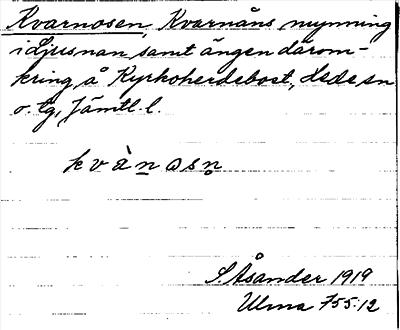 Kvarnosen, Kvarnåns mynning
i Ljusnan samt ängen därom-
kring å Kyrkoherdebost, Hede sn
o. tg, Jämtl. l.
kvànosn
S Åsander 1919
Ulma 755:12